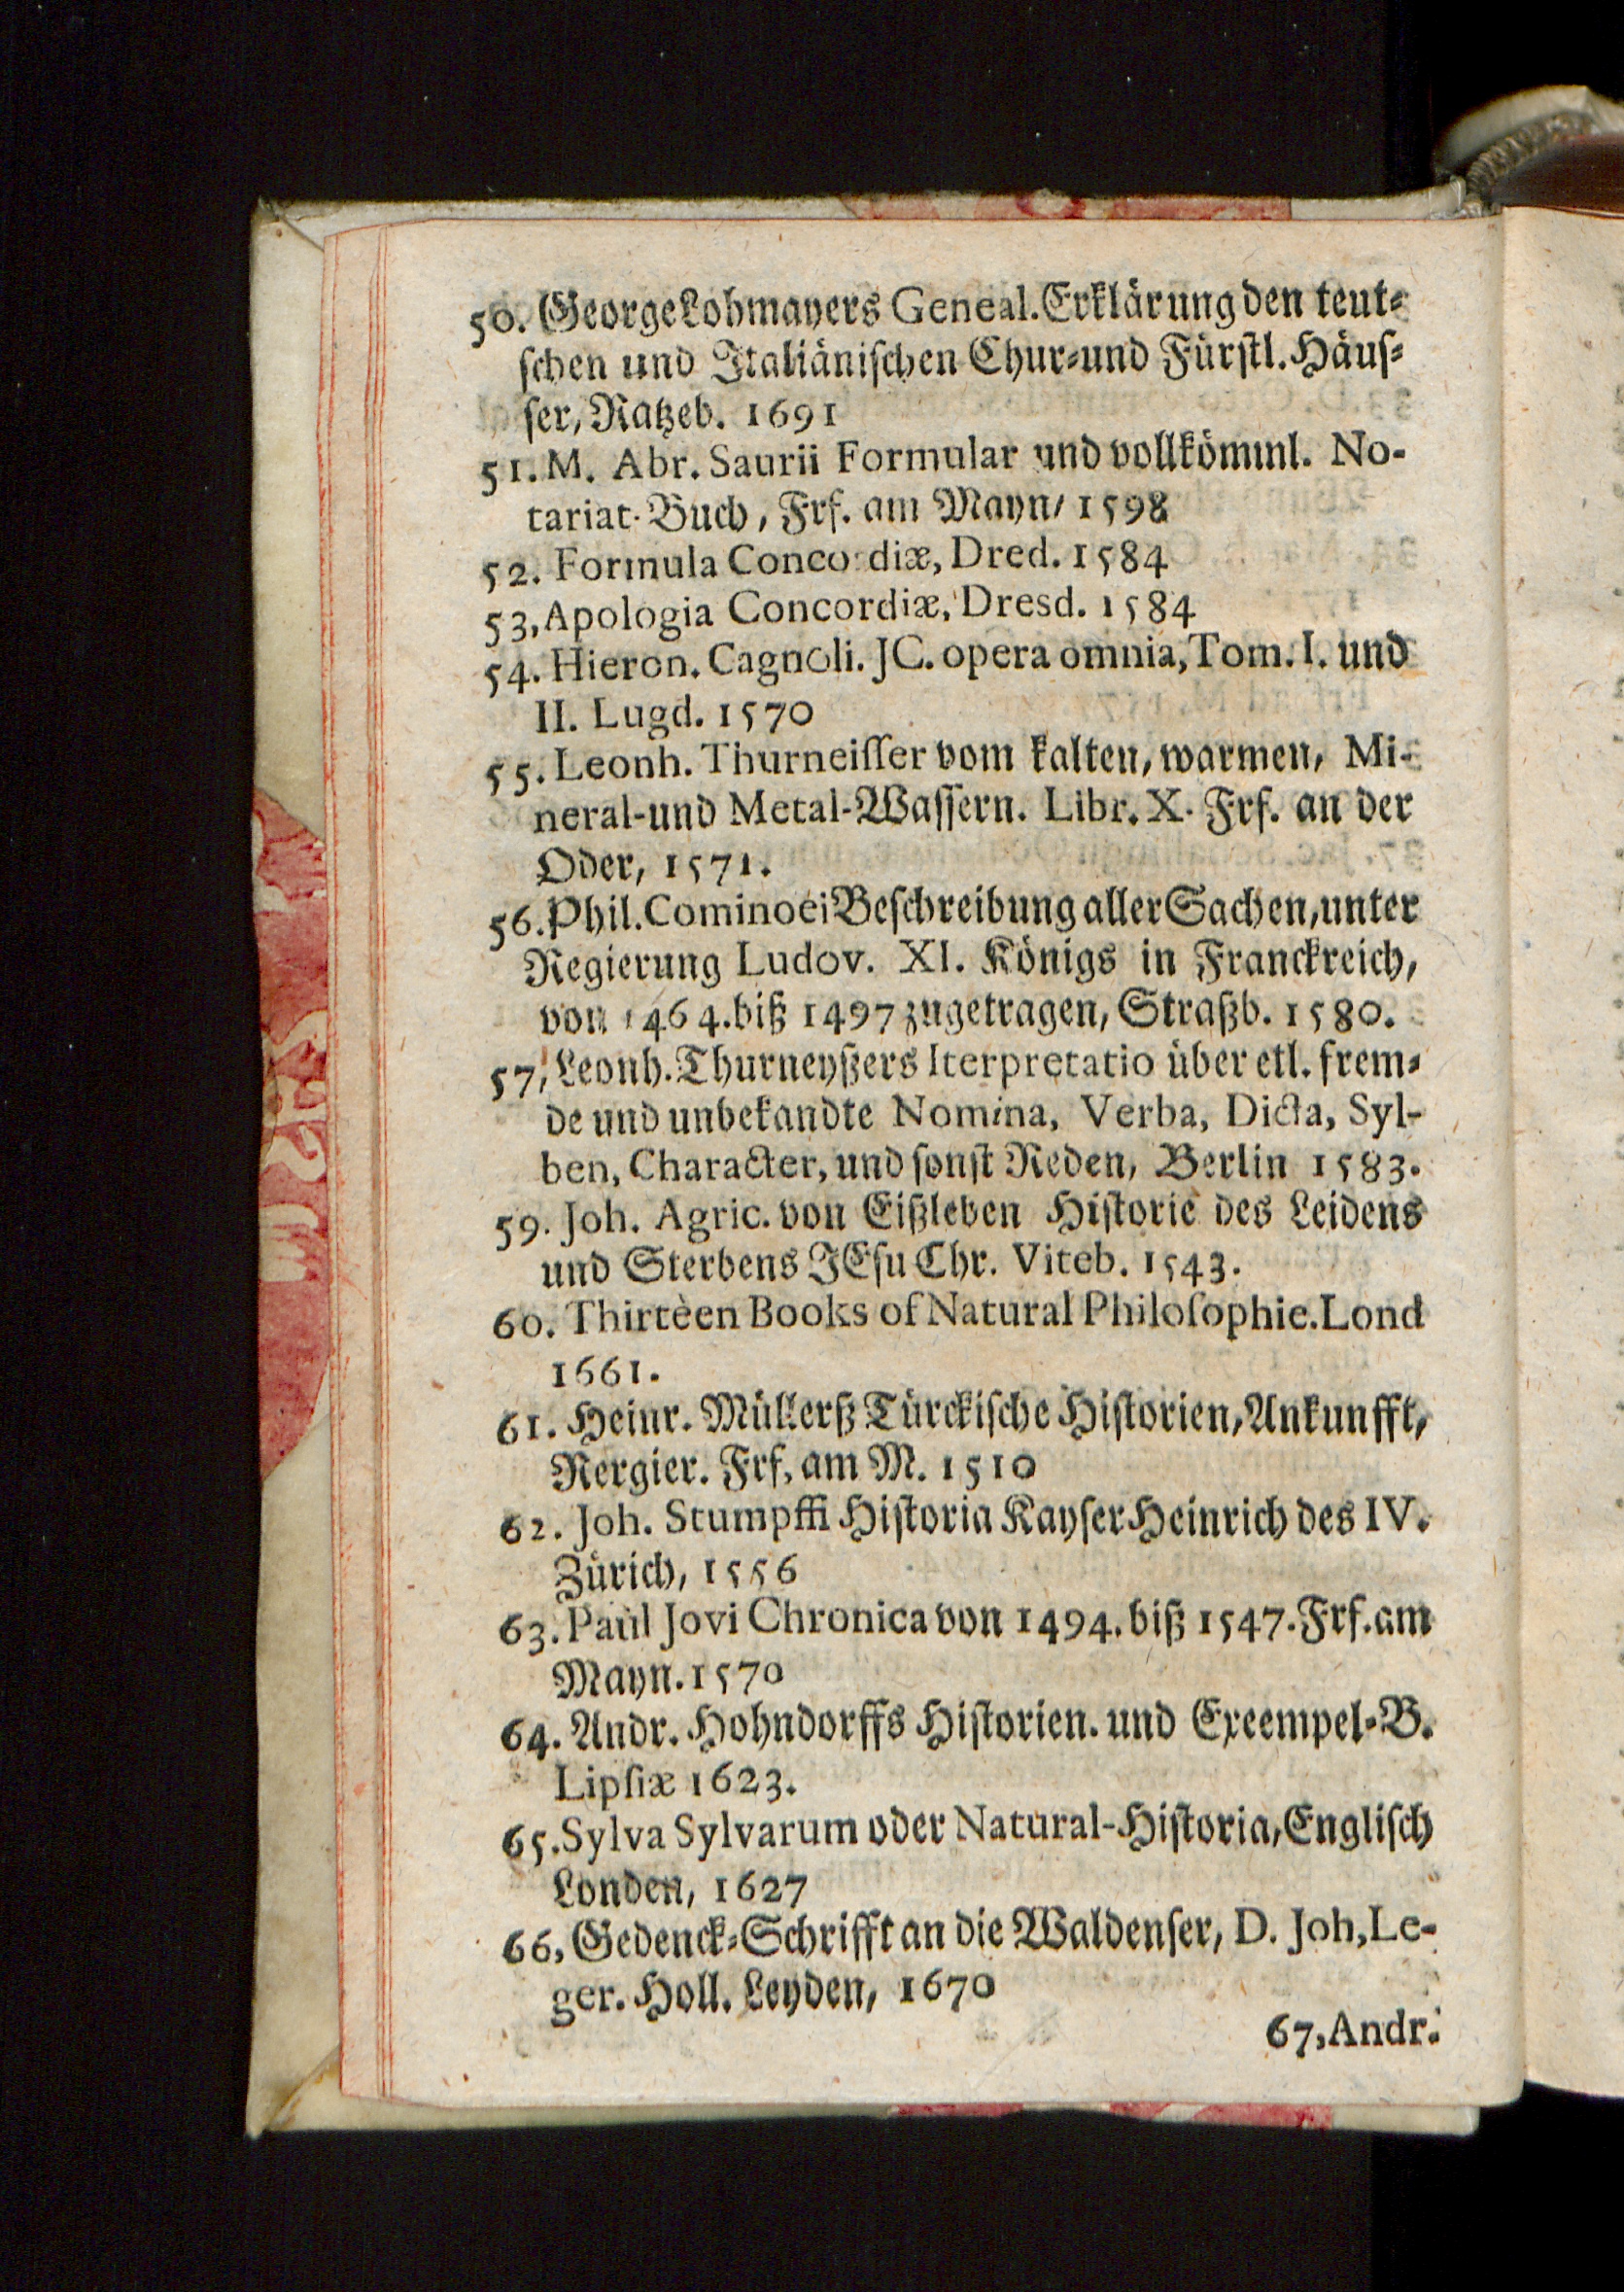 50. George Lohmayers Geneal. Erklärung den teut⸗
schen und Italiänischen Chur⸗und Fürstl. Häus⸗
ser, Ratzeb. 1691
51. M. Abr. Saurii Formular und vollkömml. No-
tariat-Buch, Frf. am Mayn/ 1598
52. Formula Concordiæ, Dred. 1584
53, Apologia Concordiæ, Dresd. 1584
54. Hieron. Cagnoli. JC. opera omnia, Tom. I. und
II. Lugd. 1570
55. Leonh. Thurneisser vom kalten, warmen, Mi-
neral-und Metal-Wassern. Libr. X. Frf. an der
Oder, 1571.
56. Phil. Cominoei Beschreibung aller Sachen, unter
Regierung Ludov. XI. Königs in Franckreich,
von 1464. biß 1497 zugetragen, Straßb. 1580.
57, Leonh. Thurneyßers Iterpretatio über etl. frem⸗
de und unbekandte Nomina, Verba, Dicta, Syl-
ben, Character, und sonst Reden, Berlin 1583.
59. Joh. Agric. von Eißleben Historie des Leidens
und Sterbens JEsu Chr. Viteb. 1543.
60. Thirteen Books of Natural Philosophie. Lond
1661.
61. Heinr. Müllerß Türckische Historien, Ankunfft,
Rergier. Frf, am M. 1510
62. Joh. Stumpffi Historia Kayser Heinrich des IV.
Zürich, 1556
63. Paul Jovi Chronica von 1494. biß 1547. Frf. am
Mayn. 1570
64. Andr. Hohndorffs Historien. und Exeempel⸗B.
Lipsiæ 1623.
65. Sylva Sylvarum oder Natural-Historia, Englisch
Londen, 1627
66, Gedenck⸗Schrifft an die Waldenser, D. Joh, Le-
ger. Holl. Leyden, 1670
67, Andr.